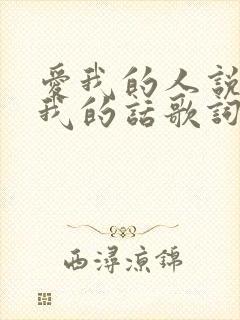 愛我的人說
我的話歌詞
西潯涼錦